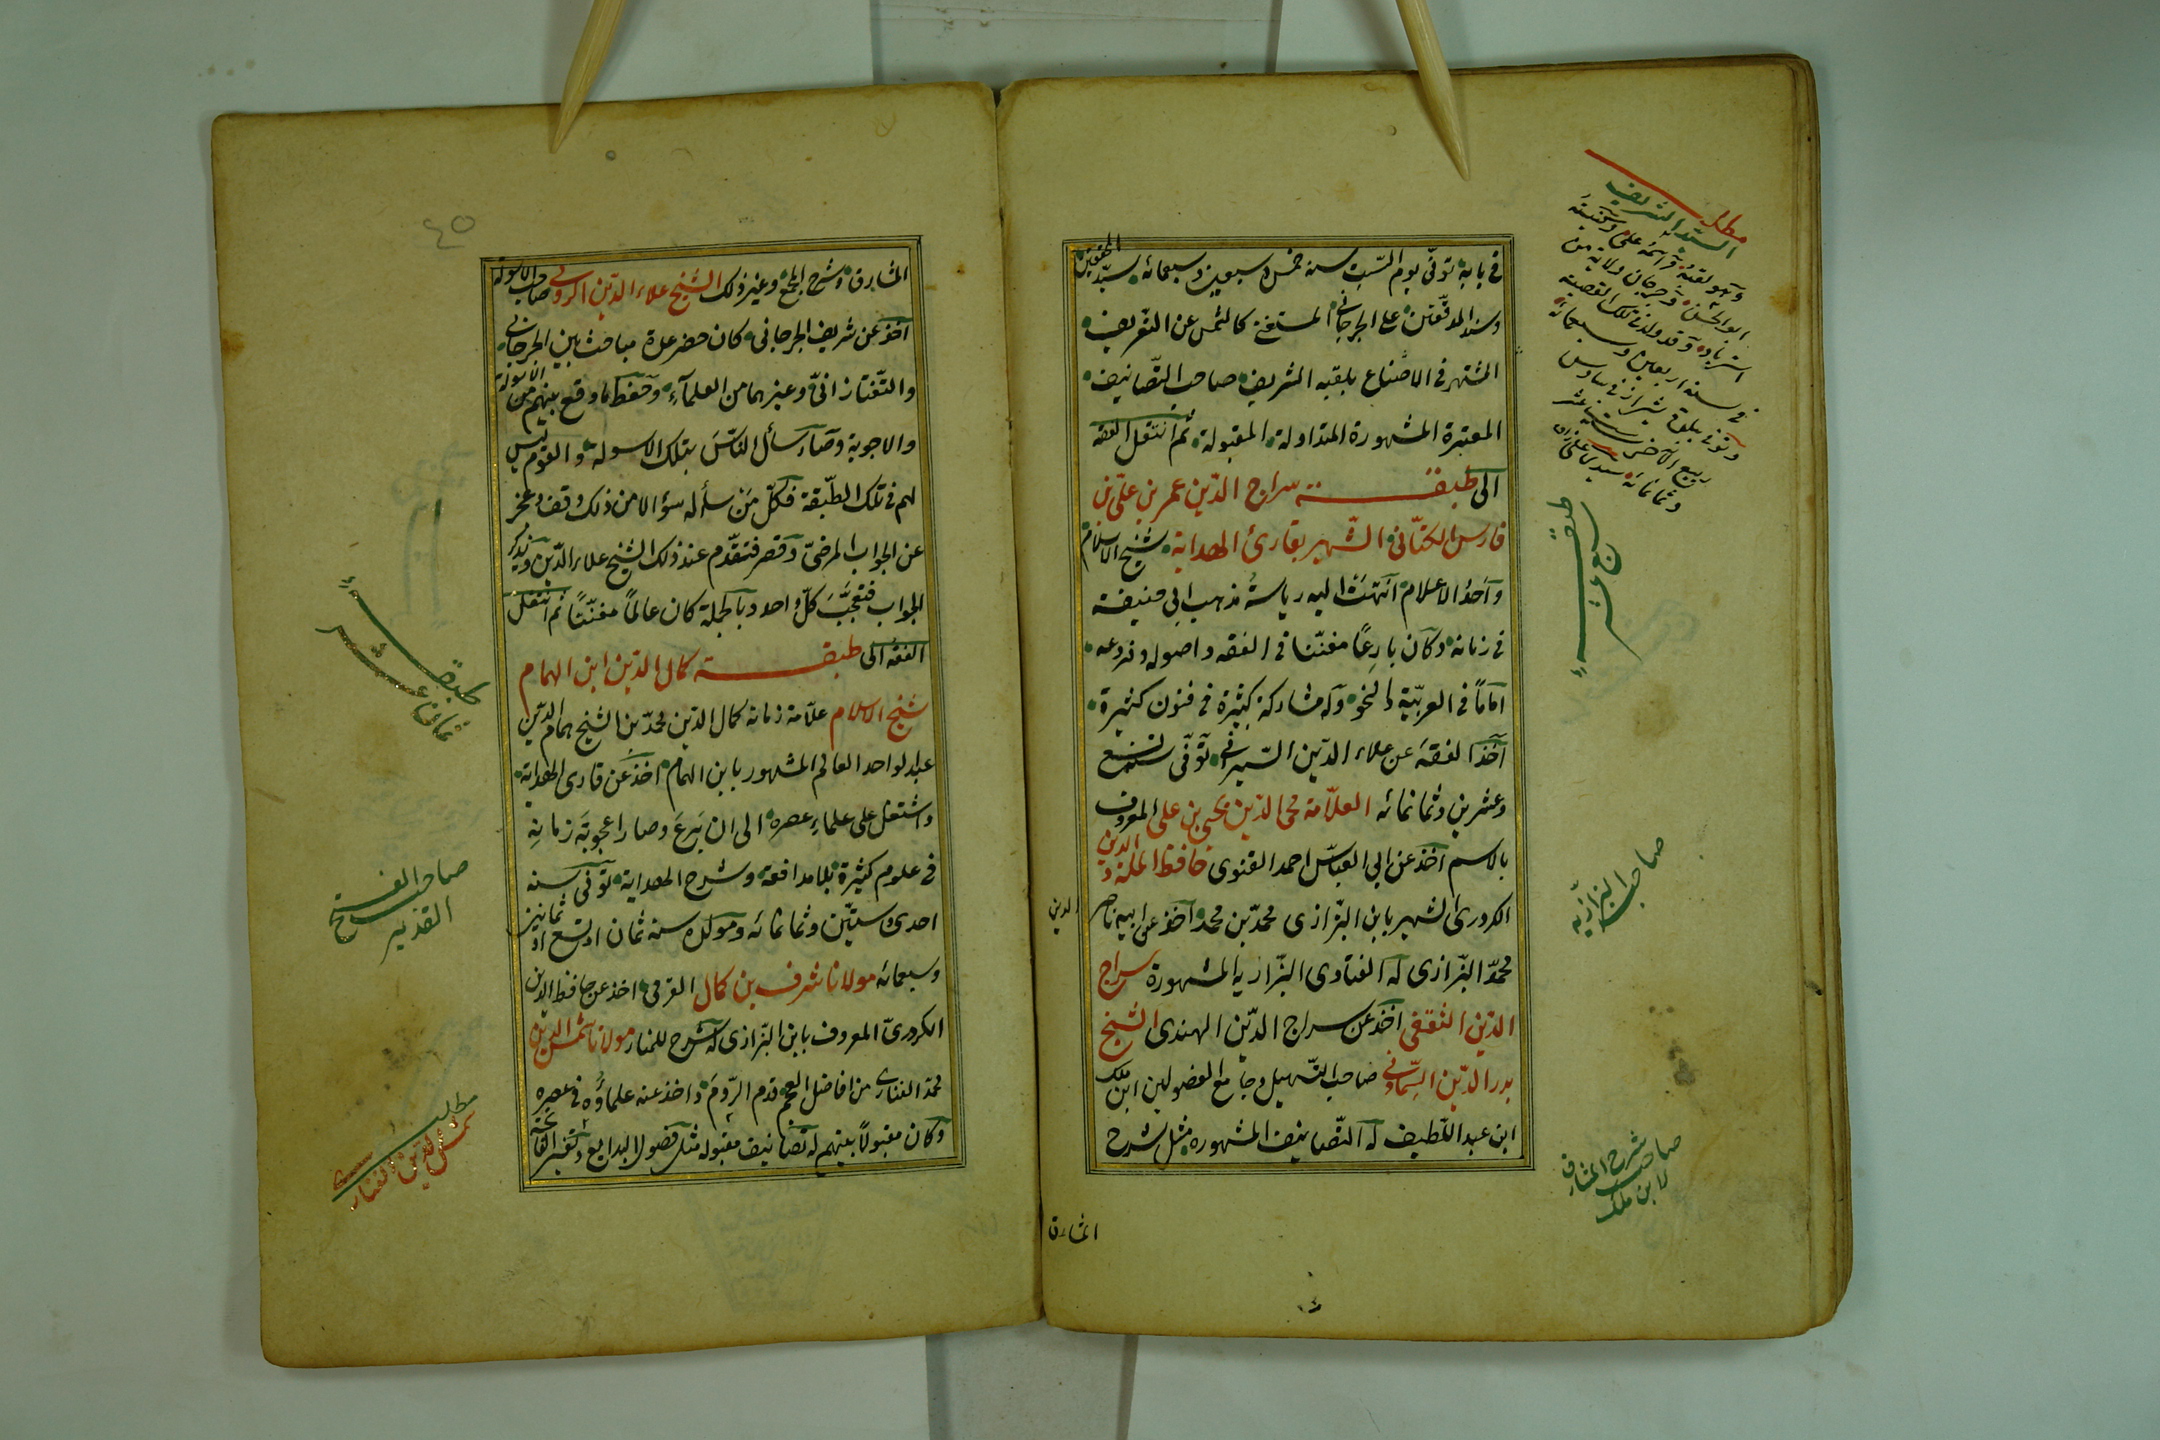 في بابه توفّي يوم السّبت سنه خمس وسبعين وسبعمائه سيّد المحققين
وسند المدقّقين علي الجرجاني المستغني كالشمس عن التّعريف
المشتهر في الاصقاع بلقبه الشريف صاحب التّصانيف
المعتبرة المشهورة المتداولة المقبولة ثم انتقل الفقه
الى طبقــة سراج الدّين عمر بن عليّ بن
فارس الكتّاني الشّهير بقارئ الهداية شيخ الاسلام
واحد الاعلام انتهت اليه رياسة مذهب ابي حنيفة
في زمانه وكان بارعًا مفنّنا في الفقه واصوله وفروعه
امامًا في العربيّة والنحو وله مشاركة كثيرة في فنون كثيرة
اخذ الفقه عن علاء الدّين السّيرافي توفّي لتسع
وعشرين وثمانمائه العلّامة محي الدّين يحيى بن علي المعروف
بالاسم اخذ عن ابي العبّاس احمد القنوى حافظ الملة والدين
الكردرى الشهير بابن البزّازى محمّد بن محمد اخذ عن ابيه ناصر الدين
محمّد البزّازى له الفتاوى البزّازيه المشهورة سراج
الدّين الثقفى اخذ عن سراج الدّين الهندى الشيخ
بدر الدّين السّماوني صاحب التّسهيل وجامع الفصولين ابن ملك
ابن عبد اللّطيف له التّصانيف المشهوره مثل شرح
المشارق
مطلب
السيّد الشريف
وهو لقبه واسمه علي وكنيته
ابو الحسن وجرجان ولاية من
استراباد وقد ولد في تلك القصبة
في سنة اربعين وسبعمائة
وتوفي ببلدة شيراز في سادس
ربيع الآخر سنة ست عشر
وثمانمائة
طبقــة
سبع عشر
صاحب البزّازيّه
صاحب شرح المشارق
لابن ملك
٤٥
المشارق وشرح المجمع وغير ذلك الشيخ علاء الدّين الرومي صاحب الاسولة
اخذ عن شريف الجرجاني كان حضر عدة مباحث بين الجرجاني
والتّفتازانيّ وغيرهما من العلمآء وحفظ ما وقع بينهم من الاسولة
والاجوبة وصار يسأل النّاس بتلك الاسولة والقوم ليس
لهم في تلك الطّبقة فكلّ من سأله سؤالا من ذلك وقف وعجز
عن الجواب المرضيّ وقصر فتقدّم عند ذلك الشيخ علاء الدّين ويذكر
الجواب فتعجّب كلّ واحد وبالجملة كان عالمًا مفنّنًا ثم انتقل
الفقه الى طبقــة كمال الدّين ابن الهمام
شيخ الاسلام علّامة زمانه كمال الدّين محمّد بن الشيخ همام الدّين
عبد الواحد العالم المشهور بابن الهمام اخذ عن قارى الهداية
واشتغل على علماء عصره الى ان برع وصار اعجوبة زمانه
في علوم كثيرة بلا مدافعة وشرح الهداية توفّي سنه
احدى وستّين وثمانمائه ومولده سنة ثمان او تسع او ثمانين
وسبعمائه مولانا شرف بن كمال القرمي اخذ عن حافظ الدّين
الكردريّ المعروف بابن البزّازى له شرح للمنار مولانا شمس الدّين
محمّد الفنارى من افاضل العجم قدم الرّوم واخذ عنه علماؤه في عصره
وكان مقبولًا بينهم له تصانيف مقبوله مثل فصول البدايع وتفسير الفاتحة
طبقــة
ثمان عشر
صاحب الفتح
القدير
مطلب
شمس الدّين الفنارى